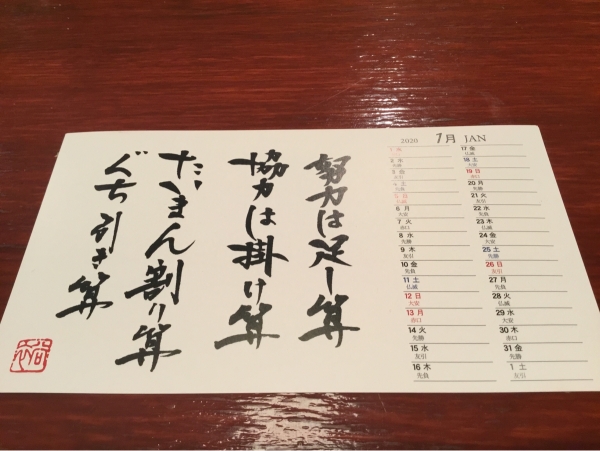 努力は足し算
協力は掛け算
だまん割り算
ぐち引き算
2020 1月 JAN
3 金
友引
4 土
先負
5 日
仏滅
6 月
大安
7 火
赤口
8 水
先勝
9 木
友引
10 金
先負
11 土
仏滅
12 日
大安
13 月
赤口
14 火
先勝
15 水
友引
16 木
先負
17 金
仏滅
18 土
大安
19 日
赤口
20 月
先勝
21 火
友引
22 水
先負
23 木
仏滅
24 金
大安
25 土
先勝
26 日
友引
27 月
先負
28 火
仏滅
29 水
大安
30 木
赤口
31 金
先勝
1 土
友引